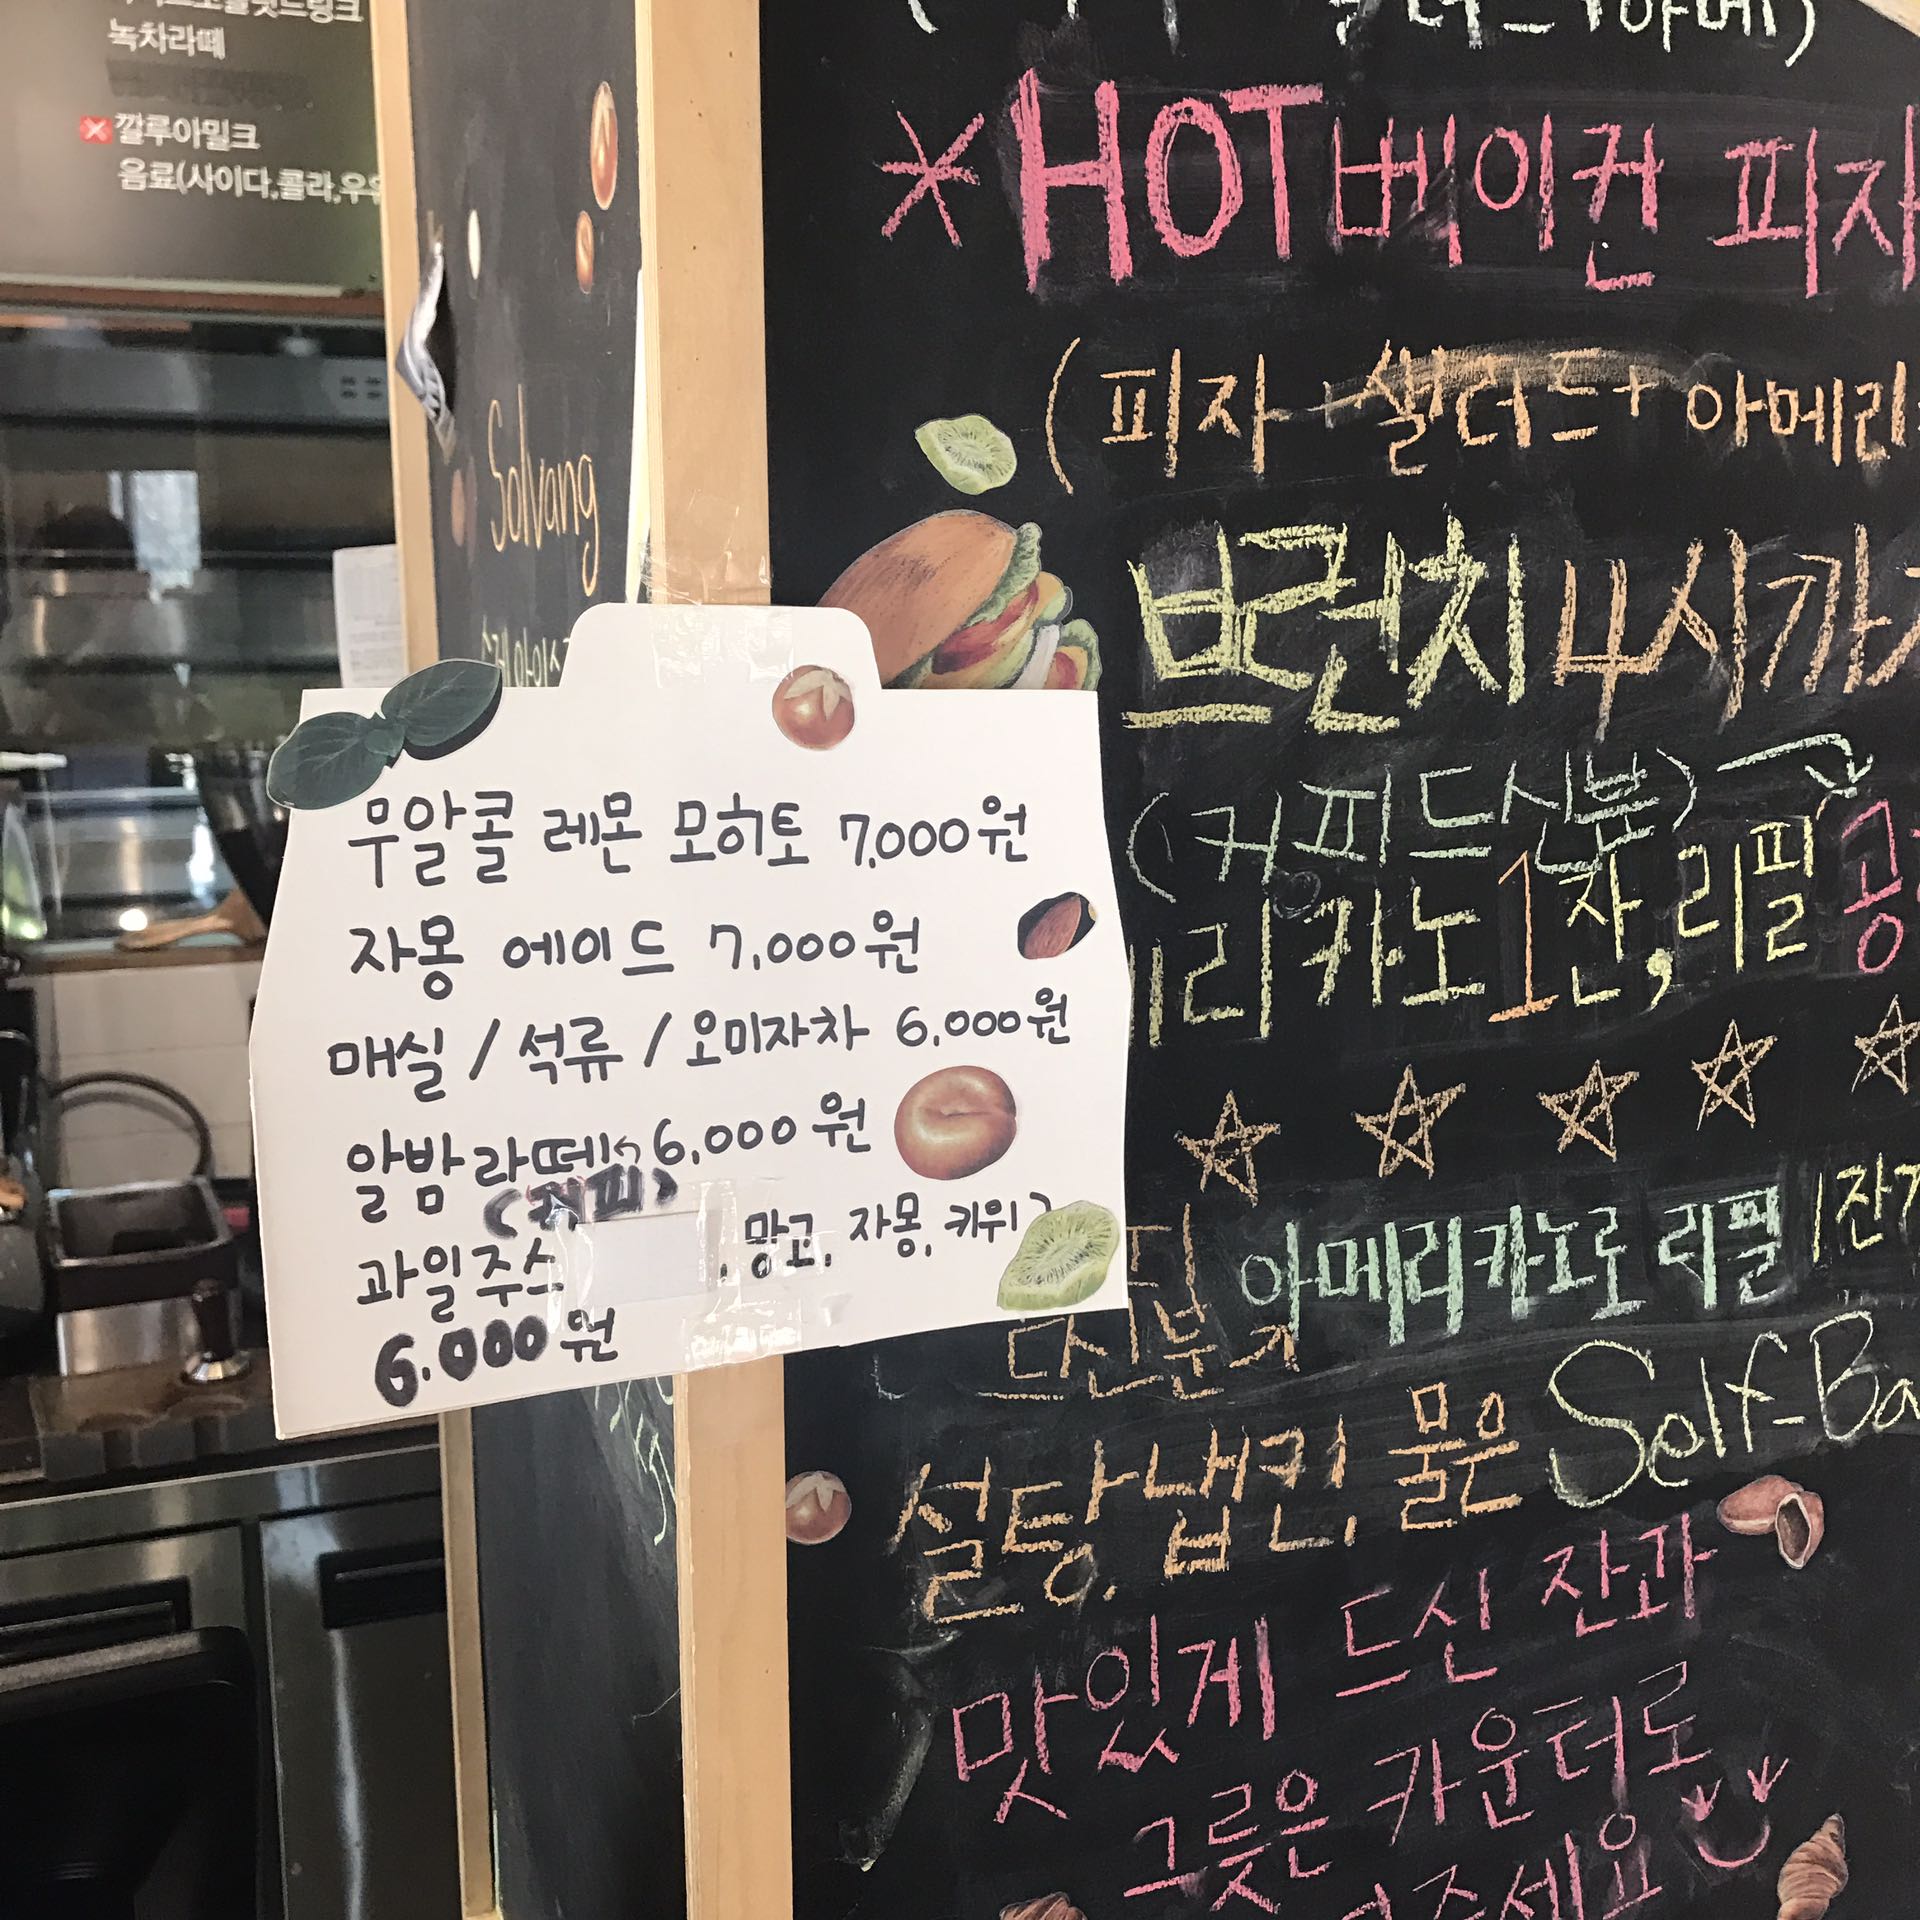 녹차라떼
깔루아밀크
음료(사이다,콜라,우유
Solvang
무알콜 레몬 모히토 7,000원
자몽 에이드 7,000원
매실 / 석류 / 오미자차 6,000원
알밤라떼 6,000원
(커피)
과일주스 , 망고, 자몽, 키위
6,000원
*HOT베이컨 피자
(피자 + 샐러드 + 아메리
브런치 4시까지
(커피드신분)
리카노 1잔, 리필 공
아메리카노로 리필 1잔
드신분
설탕, 냅킨, 물은 Self-Ba
맛있게 드신 잔과
그릇은 카운터로
주세요